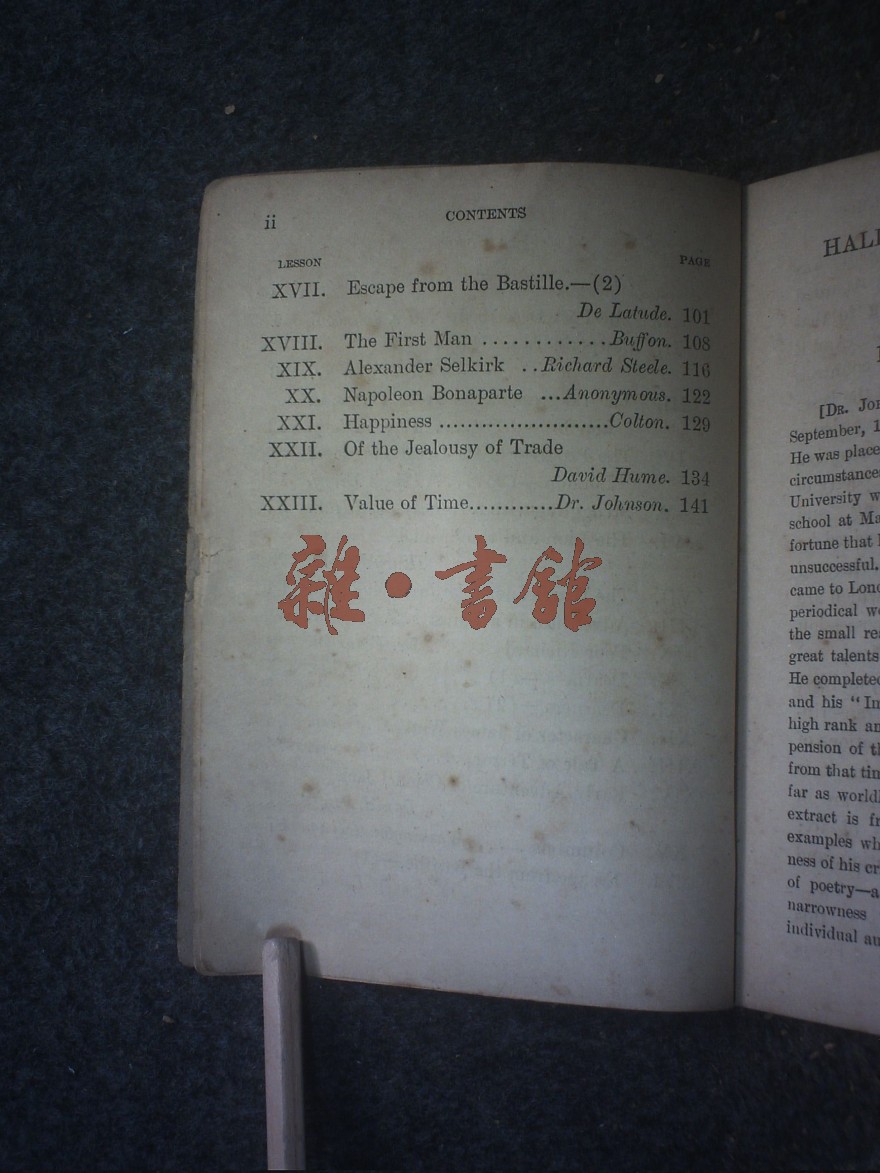 ii
CONTENTS
LESSON PAGE
XVII. Escape from the Bastille.—(2)
De Latude. 101
XVIII. The First Man ............Buffon. 108
XIX. Alexander Selkirk ..Richard Steele. 116
XX. Napoleon Bonaparte ...Anonymous. 122
XXI. Happiness ........................Colton. 129
XXII. Of the Jealousy of Trade
David Hume. 134
XXIII. Value of Time............Dr. Johnson. 141
雜·書館
[DR.
September, 1
He was place
circumstance
University w
school at
fortune that
unsuccessful.
came to
periodical
the small
great talents
He completed
and his “
high rank
pension of
from that
far as
extract is
examples
ness of his
of poetry—a
narrowness
individual